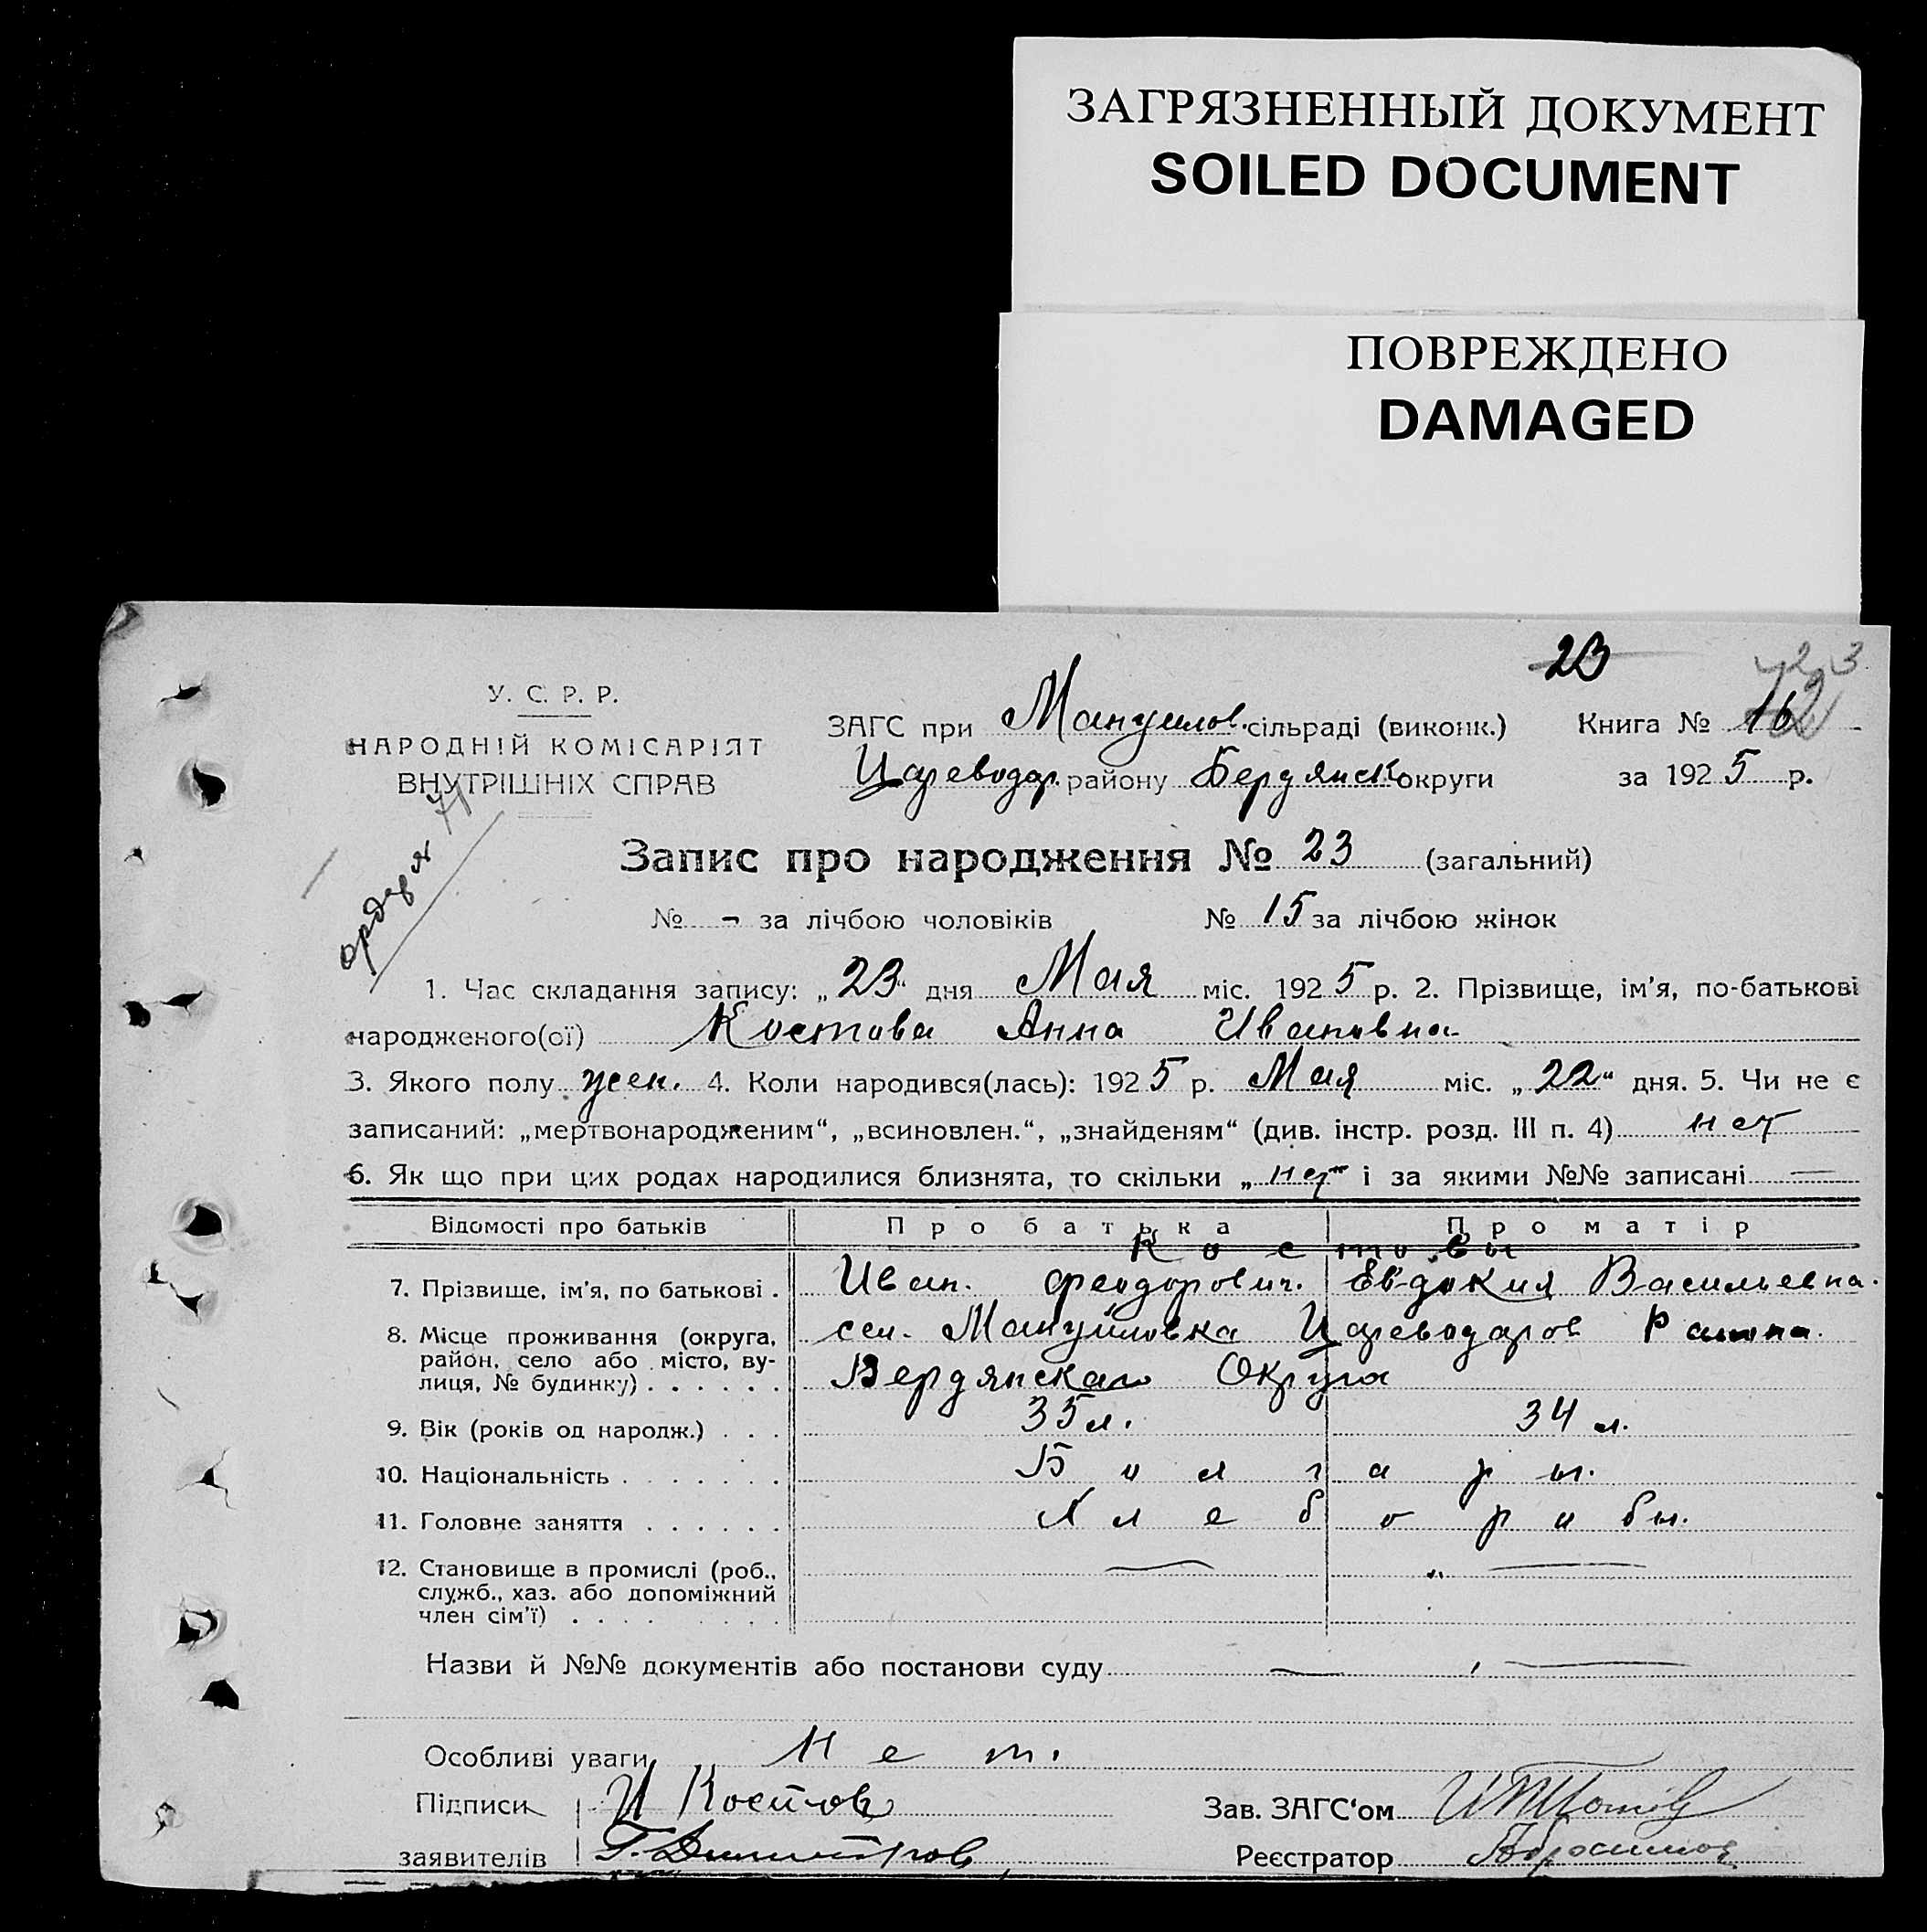 ЗАГРЯЗНЕННЫЙ ДОКУМЕНТ
SOILED DOCUMENT
ПОВРЕЖДЕНО
DAMAGED
23
У. С. Р. Р.
НАРОДНІЙ КОМІСАРІЯТ
ВНУТРІШНІХ СПРАВ
ЗАГС при Мануилов. сільраді (виконк.) Книга № 16
Цареводар. району Бердянск округи за 1925 р.
Запис про народження № 23 (загальний)
№ - за лічбою чоловіків № 15 за лічбою жінок
1. Час складання запису: „23“ дня Мая міс. 1925 р. 2. Прізвище, ім'я, по-батькові
народженого(ої) Костова Анна Ивановна
3. Якого полу жен. 4. Коли народився(лась): 1925 р. Мая міс. „22“ дня. 5. Чи не є
записаний: „мертвонародженим“, „всиновлен.“, „знайденям“ (див. інстр. розд. III п. 4) нет
6. Як що при цих родах народилися близнята, то скільки „нет“ і за якими №№ записані —
Відомості про батьків Про батька Про матір
Костовы
7. Прізвище, ім'я, по батькові . Иван. Феодорович. Евдокия Васильевна.
8. Місце проживання (округа, сел. Мануйловка Цареводаров Района.
район, село або місто, ву-
лиця, № будинку) . . . . . . Бердянскаго Округа
9. Вік (років од народж.) . . . 35 л. 34 л.
10. Національність . . . . . . . Болгары.
11. Головне заняття . . . . . . Хлеборобы.
12. Становище в промислі (роб., — „ —
служб., хаз. або допоміжний
член сім'ї) . . . . . . . . .
Назви й №№ документів або постанови суду — , —
Особливі уваги Нет.
Підписи И Костов Зав. ЗАГС'ом
заявителів Г. Димитров Реєстратор Абросимов